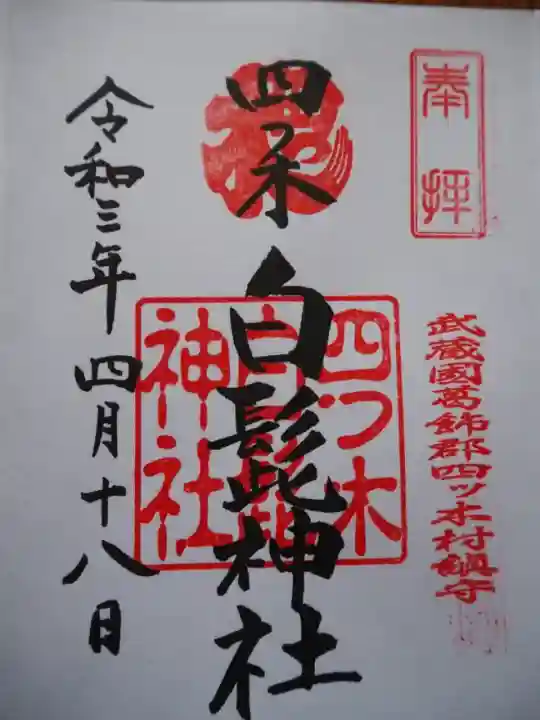 奉拝
武蔵國葛飾郡四ッ木村鎮守
四つ木白髭神社
四つ木
白髭
神社
令和三年四月十八日